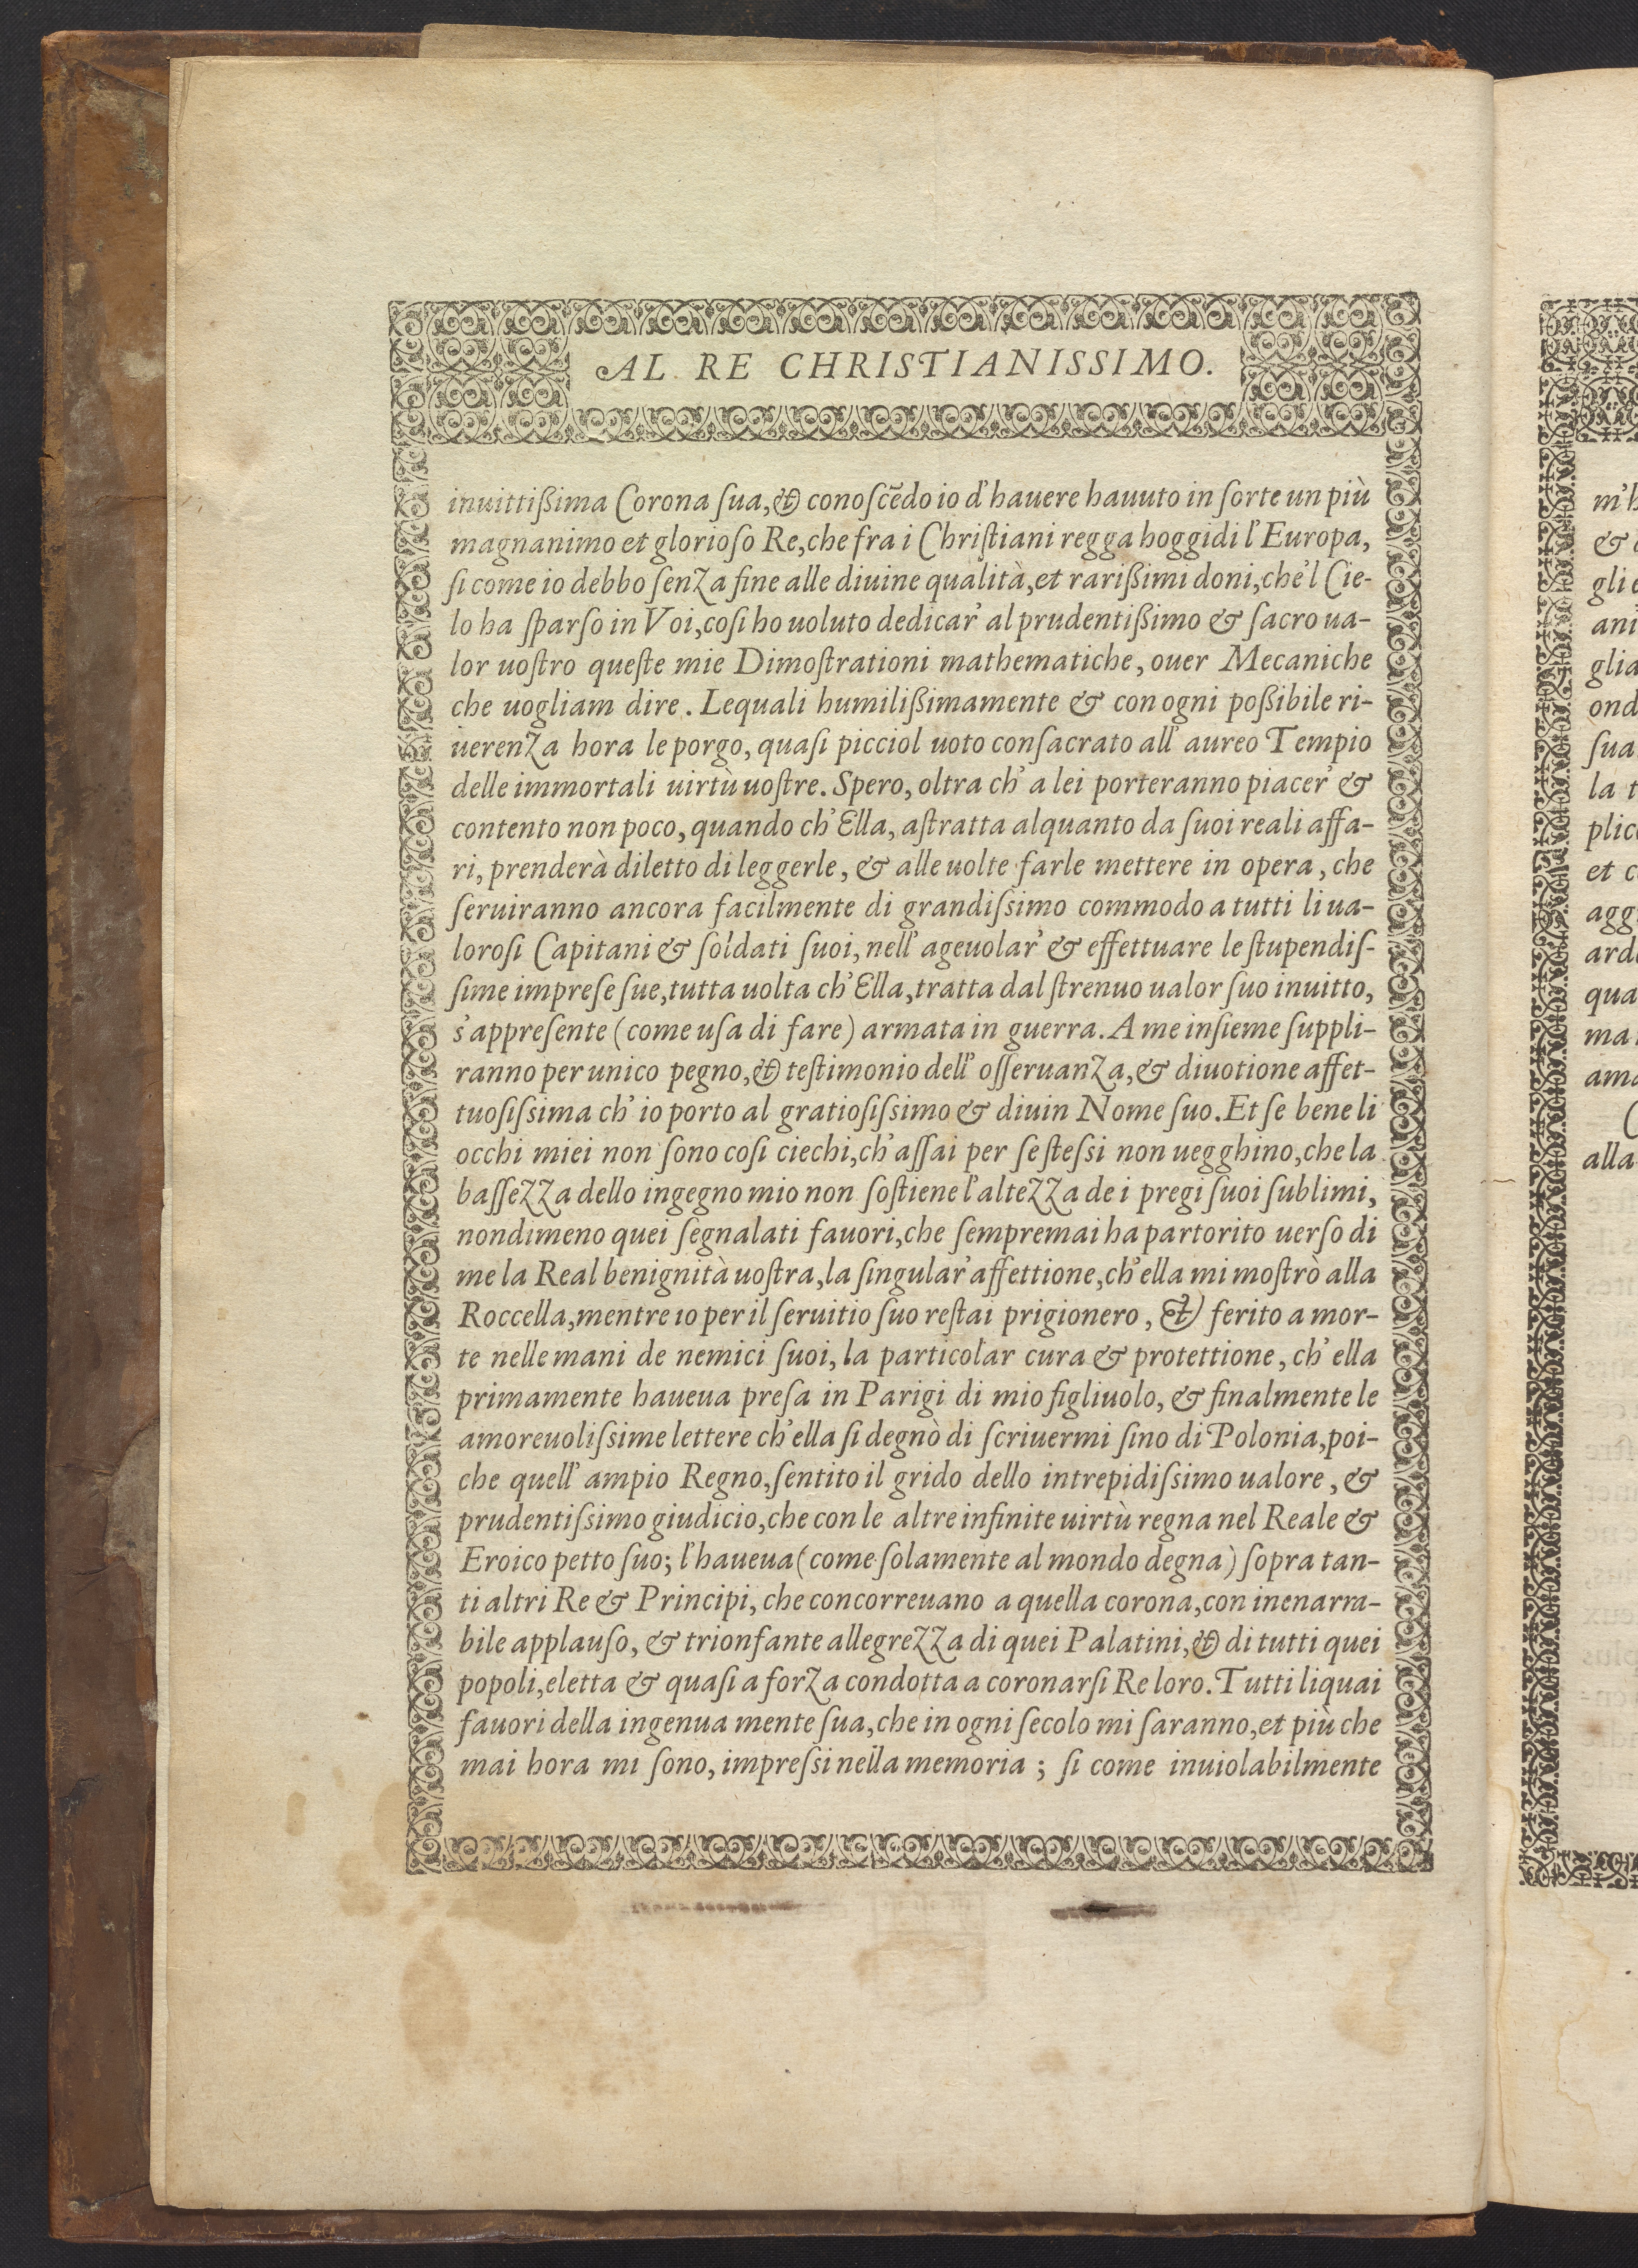 AL RE CHRISTIANISSIMO.
inuittißima Corona ſua, & conoſcẽdo io d'hauere hauuto in ſorte un più
magnanimo et glorioſo Re, che fra i Chriſtiani regga hoggidi l'Europa,
ſi come io debbo ſenza fine alle diuine qualità, et rarißimi doni, che'l Cie-
lo ha ſparſo in Voi, coſi ho uoluto dedicar' al prudentißimo & ſacro ua-
lor uoſtro queſte mie Dimoſtrationi mathematiche, ouer Mecaniche
che uogliam dire. Lequali humilißimamente & con ogni poßibile ri-
uerenza hora le porgo, quaſi picciol uoto conſacrato all' aureo Tempio
delle immortali uirtù uoſtre. Spero, oltra ch' a lei porteranno piacer' &
contento non poco, quando ch' Ella, aſtratta alquanto da ſuoi reali affa-
ri, prenderà diletto di leggerle, & alle uolte farle mettere in opera, che
ſeruiranno ancora facilmente di grandiſsimo commodo a tutti li ua-
loroſi Capitani & ſoldati ſuoi, nell' ageuolar' & effettuare le ſtupendiſ-
ſime impreſe ſue, tutta uolta ch' Ella, tratta dal ſtrenuo ualor ſuo inuitto,
s'appreſente (come uſa di fare) armata in guerra. A me inſieme ſuppli-
ranno per unico pegno, & teſtimonio dell' oſſeruanza, & diuotione affet-
tuoſiſsima ch' io porto al gratioſiſsimo & diuin Nome ſuo. Et ſe bene li
occhi miei non ſono coſi ciechi, ch' aſſai per ſe ſteſsi non uegghino, che la
baſſezza dello ingegno mio non ſoſtiene l'altezza de i pregi ſuoi ſublimi,
nondimeno quei ſegnalati fauori, che ſempremai ha partorito uerſo di
me la Real benignità uoſtra, la ſingular' affettione, ch' ella mi moſtrò alla
Roccella, mentre io per il ſeruitio ſuo reſtai prigionero, & ferito a mor-
te nelle mani de nemici ſuoi, la particolar cura & protettione, ch' ella
primamente haueua preſa in Parigi di mio figliuolo, & finalmente le
amoreuoliſsime lettere ch' ella ſi degnò di ſcriuermi ſino di Polonia, poi-
che quell' ampio Regno, ſentito il grido dello intrepidiſsimo ualore, &
prudentiſsimo giudicio, che con le altre infinite uirtù regna nel Reale &
Eroico petto ſuo; l'haueua (come ſolamente al mondo degna) ſopra tan-
ti altri Re & Principi, che concorreuano a quella corona, con inenarra-
bile applauſo, & trionfante allegrezza di quei Palatini, & di tutti quei
popoli, eletta & quaſi a forza condotta a coronarſi Re loro. Tutti liquai
fauori della ingenua mente ſua, che in ogni ſecolo mi ſaranno, et più che
mai hora mi ſono, impreſsi nella memoria; ſi come inuiolabilmente